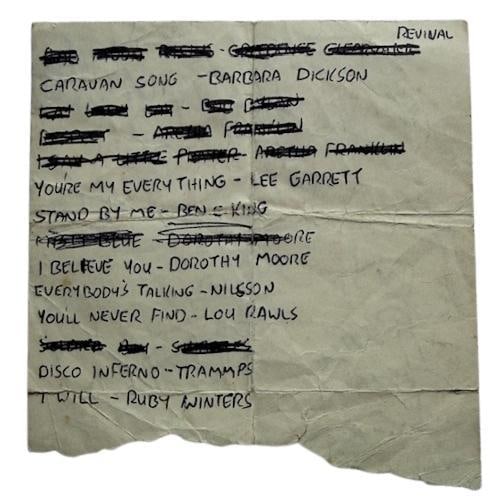 REVIVAL
MOON - CREEDENCE CLEARWATER
CARAVAN SONG - BARBARA DICKSON
- ARETHA FRANKLIN
I SAY A LITTLE PRAYER - ARETHA FRANKLIN
YOU'RE MY EVERYTHING - LEE GARRETT
STAND BY ME - BEN E KING
BLUE - DOROTHY MOORE
I BELIEVE YOU - DOROTHY MOORE
EVERYBODY'S TALKING - NILSSON
YOU'LL NEVER FIND - LOU RAWLS
DISCO INFERNO - TRAMMPS
I WILL - RUBY WINTERS